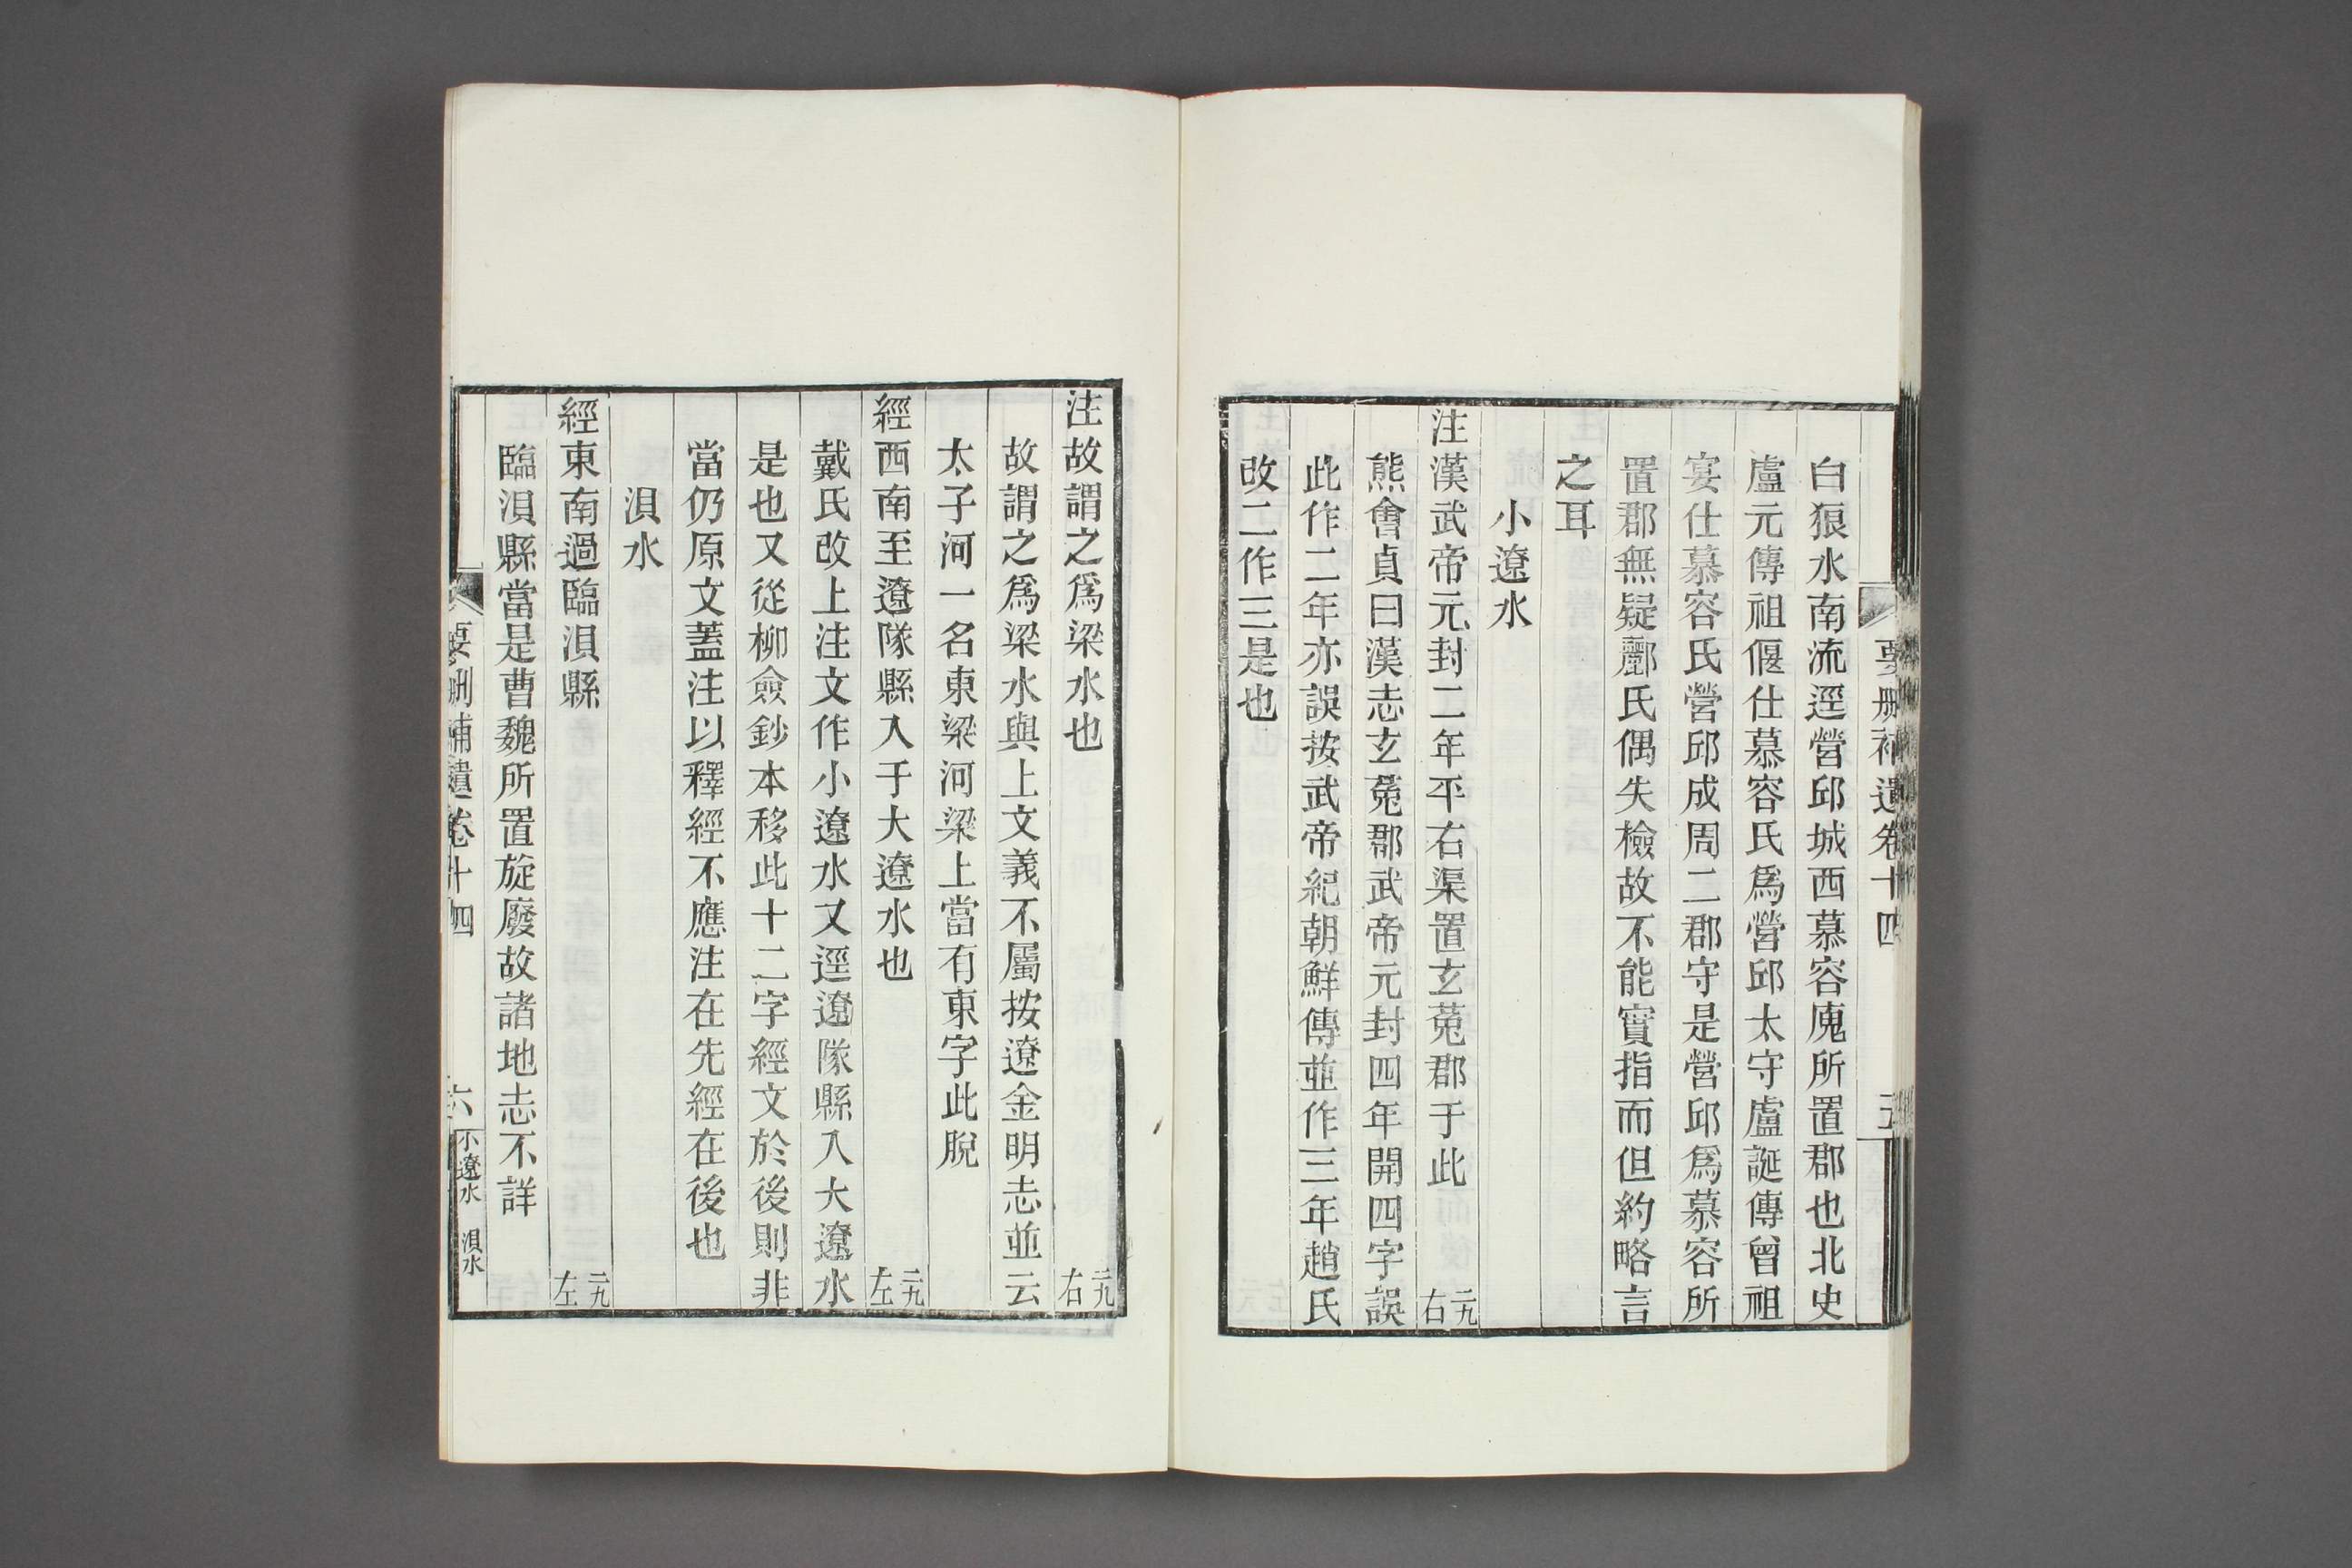 要刪補遺卷十四
五
白狼水南流逕營邱城西慕容廆所置郡也北史
盧元傳祖偃仕慕容氏爲營邱太守盧誕傳曾祖
宴仕慕容氏營邱成周二郡守是營邱爲慕容所
置郡無疑酈氏偶失檢故不能實指而但約略言
之耳
小遼水
注漢武帝元封二年平右渠置玄菟郡于此 二九右
熊會貞曰漢志玄菟郡武帝元封四年開四字誤
此作二年亦誤按武帝紀朝鮮傳並作三年趙氏
改二作三是也
注故謂之爲梁水也 二九右
故謂之爲梁水與上文義不屬按遼金明志並云
太子河一名東梁河梁上當有東字此脫
經西南至遼隊縣入于大遼水也 二九左
戴氏改上注文作小遼水又逕遼隊縣入大遼水
是也又從柳僉鈔本移此十二字經文於後則非
當仍原文蓋注以釋經不應注在先經在後也
浿水
經東南過臨浿縣 二九左
臨浿縣當是曹魏所置旋廢故諸地志不詳
要刪補遺卷十四
六
小遼水 浿水